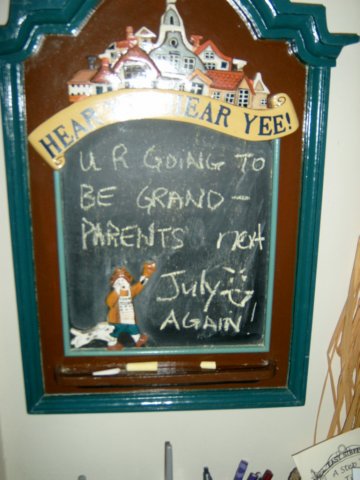 HEAR YEE! HEAR YEE!
U R GOING TO
BE GRAND-
PARENTS next
July
AGAIN!